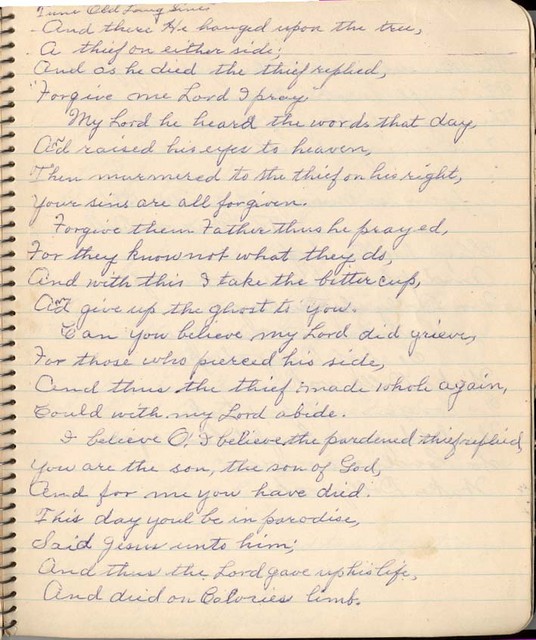 Tune Old Lang Sines
And there He hanged upon the tree,
A thief on either side;
And as he died the thief replied,
"Forgive me Lord I pray"
My Lord he heard the words that day,
And raised his eyes to heaven,
Then murmered to the thief on his right,
Your sins are all forgiven.
Forgive them Father thus he prayed,
For they know not what they do,
And with this I take the bitter cup,
And give up the ghost to you.
Can you believe my Lord did grieve,
For those who pierced his side,
And thus the thief made whole again,
Could with my Lord abide.
I believe O! I believe, the pardened thief replied,
You are the son, the son of God,
And for me you have died.
This day youl be in parodise,
Said Jesus unto him;
And thus the Lord gave up his life,
And died on Calories limb.